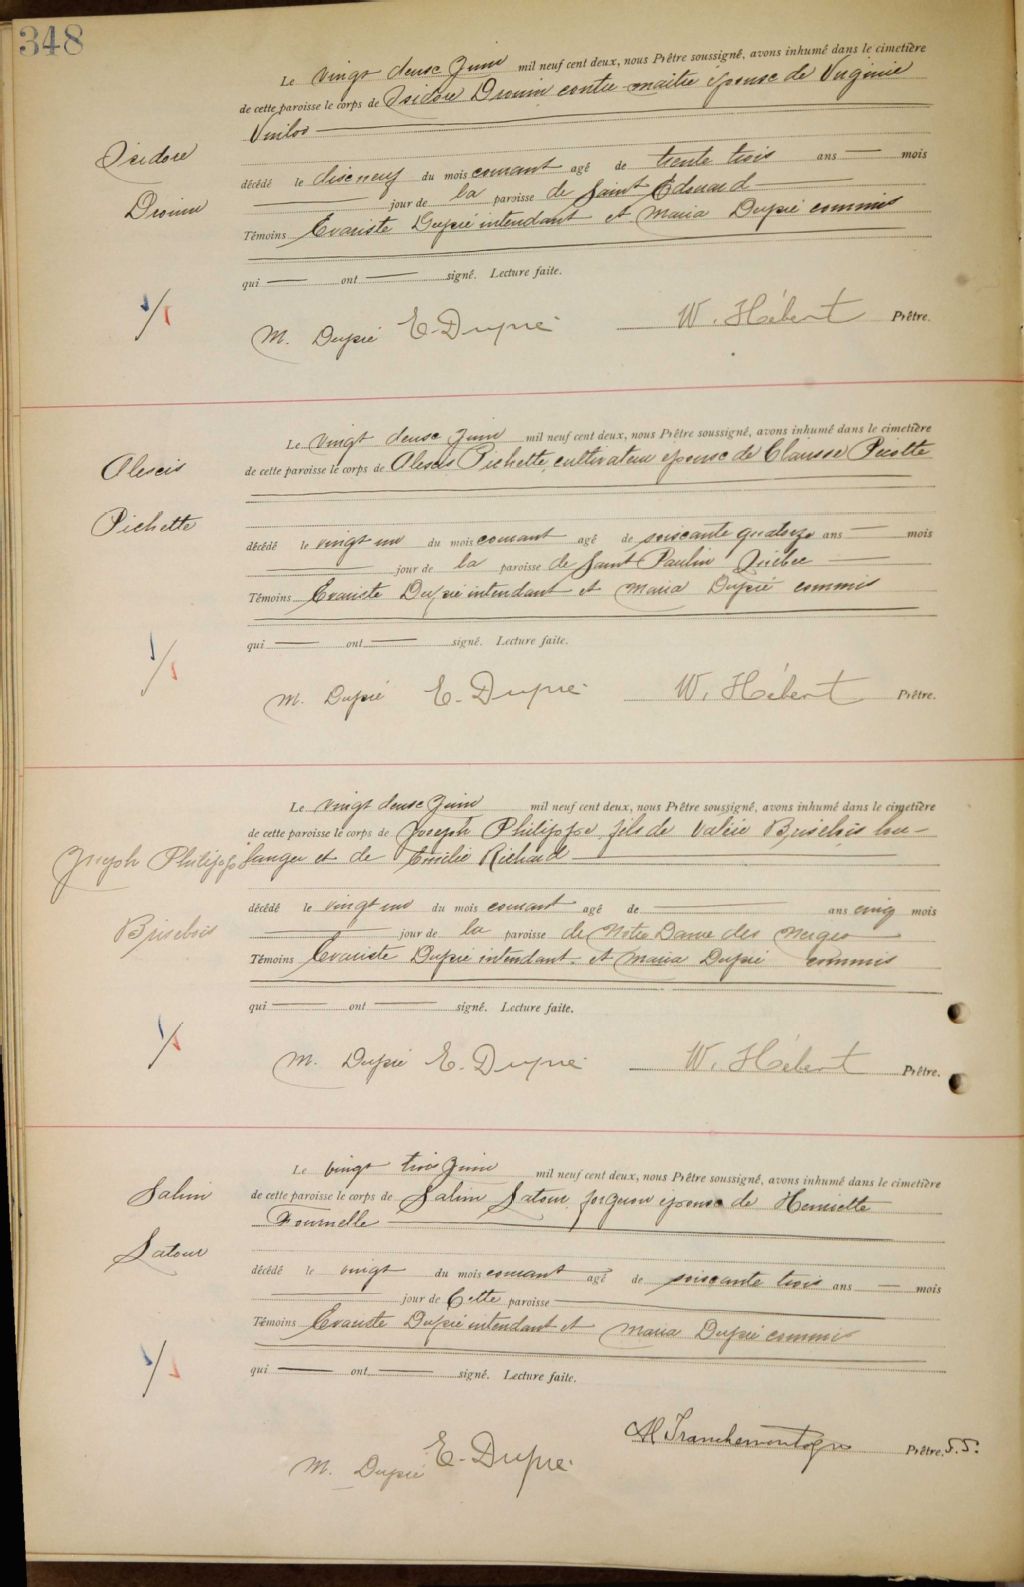 348
Le vingt deuse Juin mil neuf cent deux, nous Prêtre soussigné, avons inhumé dans le cimetière
de cette paroisse le corps de Isidore Drouin contre-maitre épouse de Virginie
Isidore
Drouin
décédé le disc neuf du mois courant agé de trente trois ans — mois
jour de la paroisse de Saint Edouard
Témoins Evariste Dupré intendant et Maria Dupré commis
qui — ont — signé. Lecture faite.
1/1
M. Dupré E. Dupré W. Hébert Prêtre.
Le vingt deuse Juin mil neuf cent deux, nous Prêtre soussigné, avons inhumé dans le cimetière
Alexis
de cette paroisse le corps de Alexis Pichette, cultivateur épouse de Clarisse Picotte
Pichette
décédé le vingt un du mois courant agé de soiscante quatorze ans — mois
jour de la paroisse de Saint Paulin Québec
Témoins Evariste Dupré intendant et Maria Dupré commis
qui — ont — signé. Lecture faite.
1/1
M. Dupré E. Dupré W. Hébert Prêtre.
Le vingt deuse Juin mil neuf cent deux, nous Prêtre soussigné, avons inhumé dans le cimetière
de cette paroisse le corps de Joseph Philippe, fils de Valérie Brisebois bou-
Joseph Philippe
langer et de Emilie Richard
Brisebois
décédé le vingt un du mois courant agé de — ans cinq mois
jour de la paroisse de Notre Dame des Neiges
Témoins Evariste Dupré intendant et Maria Dupré commis
qui — ont — signé. Lecture faite.
1/1
M. Dupré E. Dupré W. Hébert Prêtre.
Le vingt trois Juin mil neuf cent deux, nous Prêtre soussigné, avons inhumé dans le cimetière
Salim
de cette paroisse le corps de Salim Latour, forgeron épouse de Henriette
Fournelle
Latour
décédé le vingt du mois courant agé de soiscante trois ans — mois
jour de Cette paroisse
Témoins Evariste Dupré intendant et Maria Dupré commis
qui — ont — signé. Lecture faite.
1/1
M. Dupré E. Dupré Tranchemontagne Prêtre. S.S.